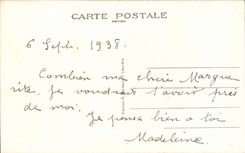 CARTE POSTALE
6 Sept. 1938.
Combien ma chère Margue
rite, Je voudrais t'avoir près
de moi. Je pense bien à toi
Madeleine.